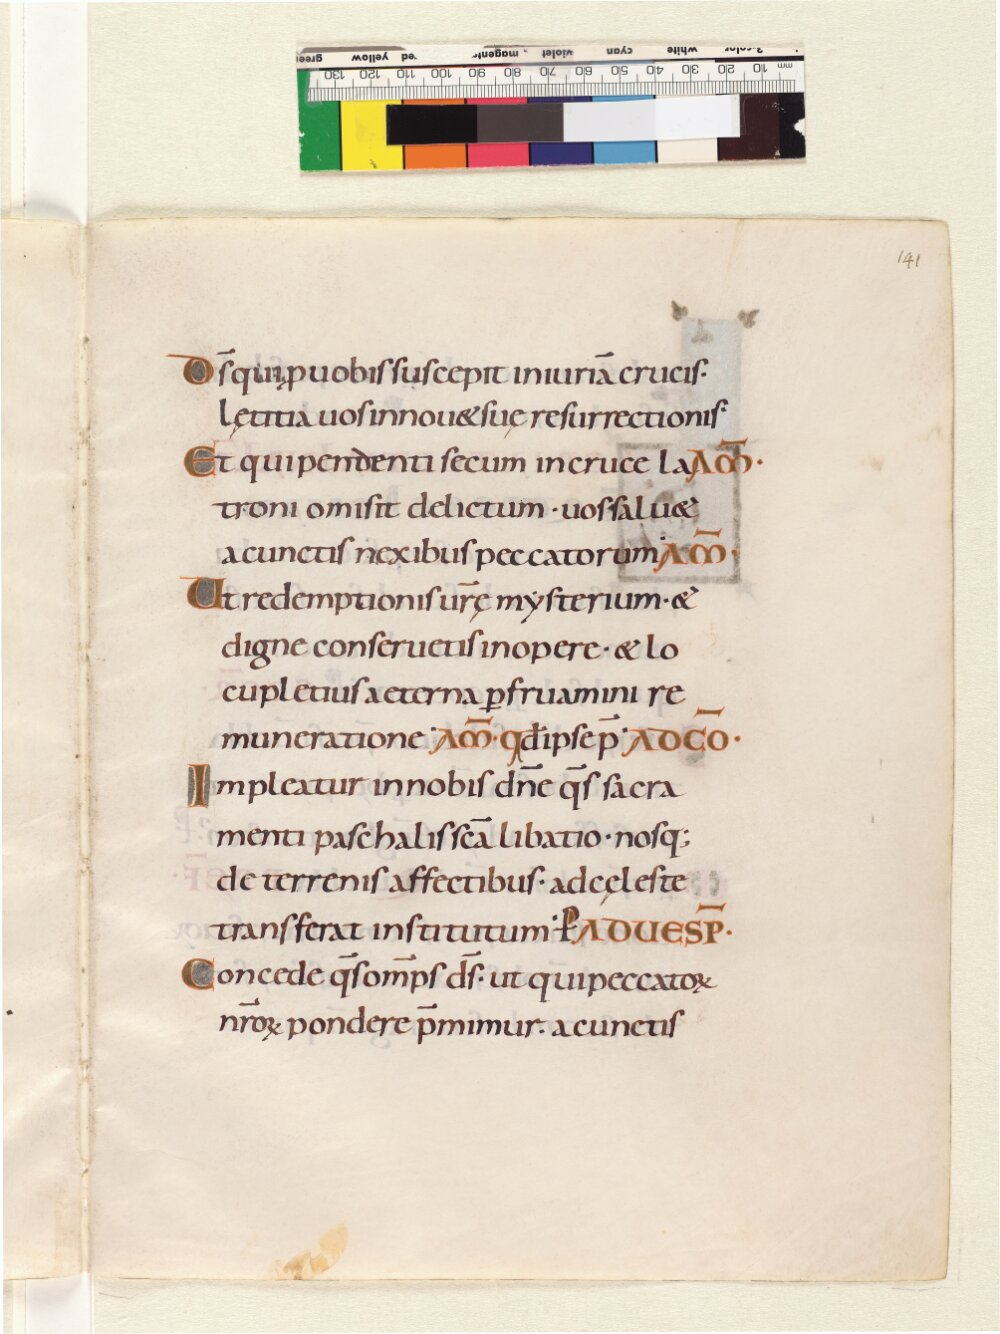 green yellow red magenta violet cyan white 3-color
130 120 110 100 90 80 70 60 50 40 30 20 10 mm
141
Ds̄ qui ꝓ uobis suscepit iniuriā crucis·
lętitia uos innou& suę resurrectionis·
Et qui pendenti secum in cruce la AM̄·
troni omisit delictum· uos salu&
a cunctis nexibus peccatorum· AM̄·
Ut redemptionis ur̄ę mysterium· &
digne conseruetis in opere· & lo
cupletius aeterna ꝑfruamini re
muneratione· AM̄· qđ ipse p̄· AD CŌ·
Impleatur in nobis dn̄e q̄s sacra
menti paschalis sc̄a libatio· nosq;
de terrenis affectibus· ad cęleste
transferat institutum· P AD UESP̄·
Concede q̄s om̄ps ds̄· ut qui peccatoꝝ
nr̄oꝝ pondere p̄mimur· a cunctis